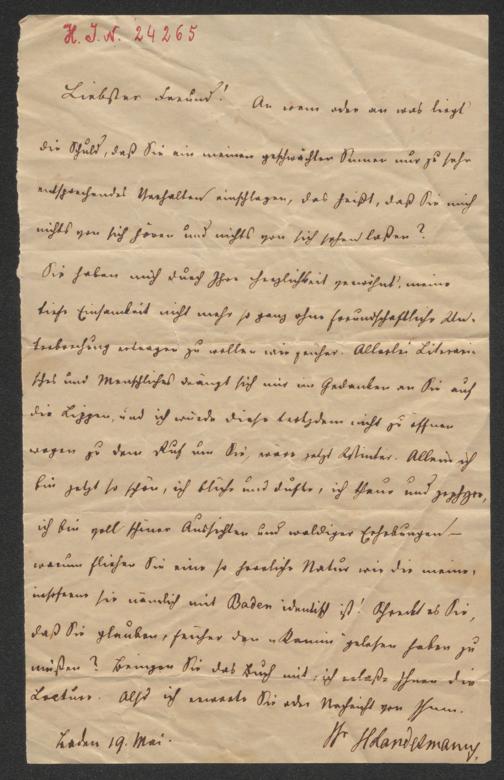 H. I. N. 24265
Liebster Freund! An wem oder an was liegt
die Schuld, daß Sie ein meinen geschwächten Sinnen nur zu sehr
entsprechendes Verhalten einschlagen, das heißt, daß Sie mich
nichts von sich hören und nichts von sich sehen laßen?
Sie haben mich durch Ihre Herzlichkeit verwöhnt, meine
tiefe Einsamkeit nicht mehr so ganz ohne freundschaftliche Un-
terbrechung ertragen zu wollen wie früher. Allerlei Literari-
sches und Menschliches drängt sich mir im Gedanken an Sie auf
die Lippen, und ich würde diese trotzdem nicht zu öffnen
wagen zu dem Ruf um Sie, wäre jetzt Winter. Allein ich
bin jetzt so schön, ich blühe und dufte, ich thaue und
ich bin voll schöner Aussichten und waldiger Erhebungen –
warum fliehen Sie eine so herrliche Natur wie die meine,
insoferne sie nämlich mit Baden identisch ist! Schreckt es Sie,
daß Sie glauben, früher den "Kamin" gelesen haben zu
müßen? Bringen Sie das Buch mit; ich erlaße Ihnen die
Lectüre. Also ich erwarte Sie oder Nachricht von Ihnen.
Baden 19. Mai.
Ihr HLandesmann